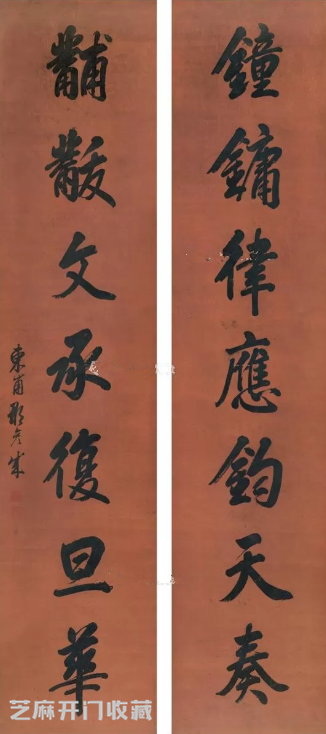 鐘鏞律應鈞天奏
黼黻文承復旦華
東甫
芝麻开门收藏